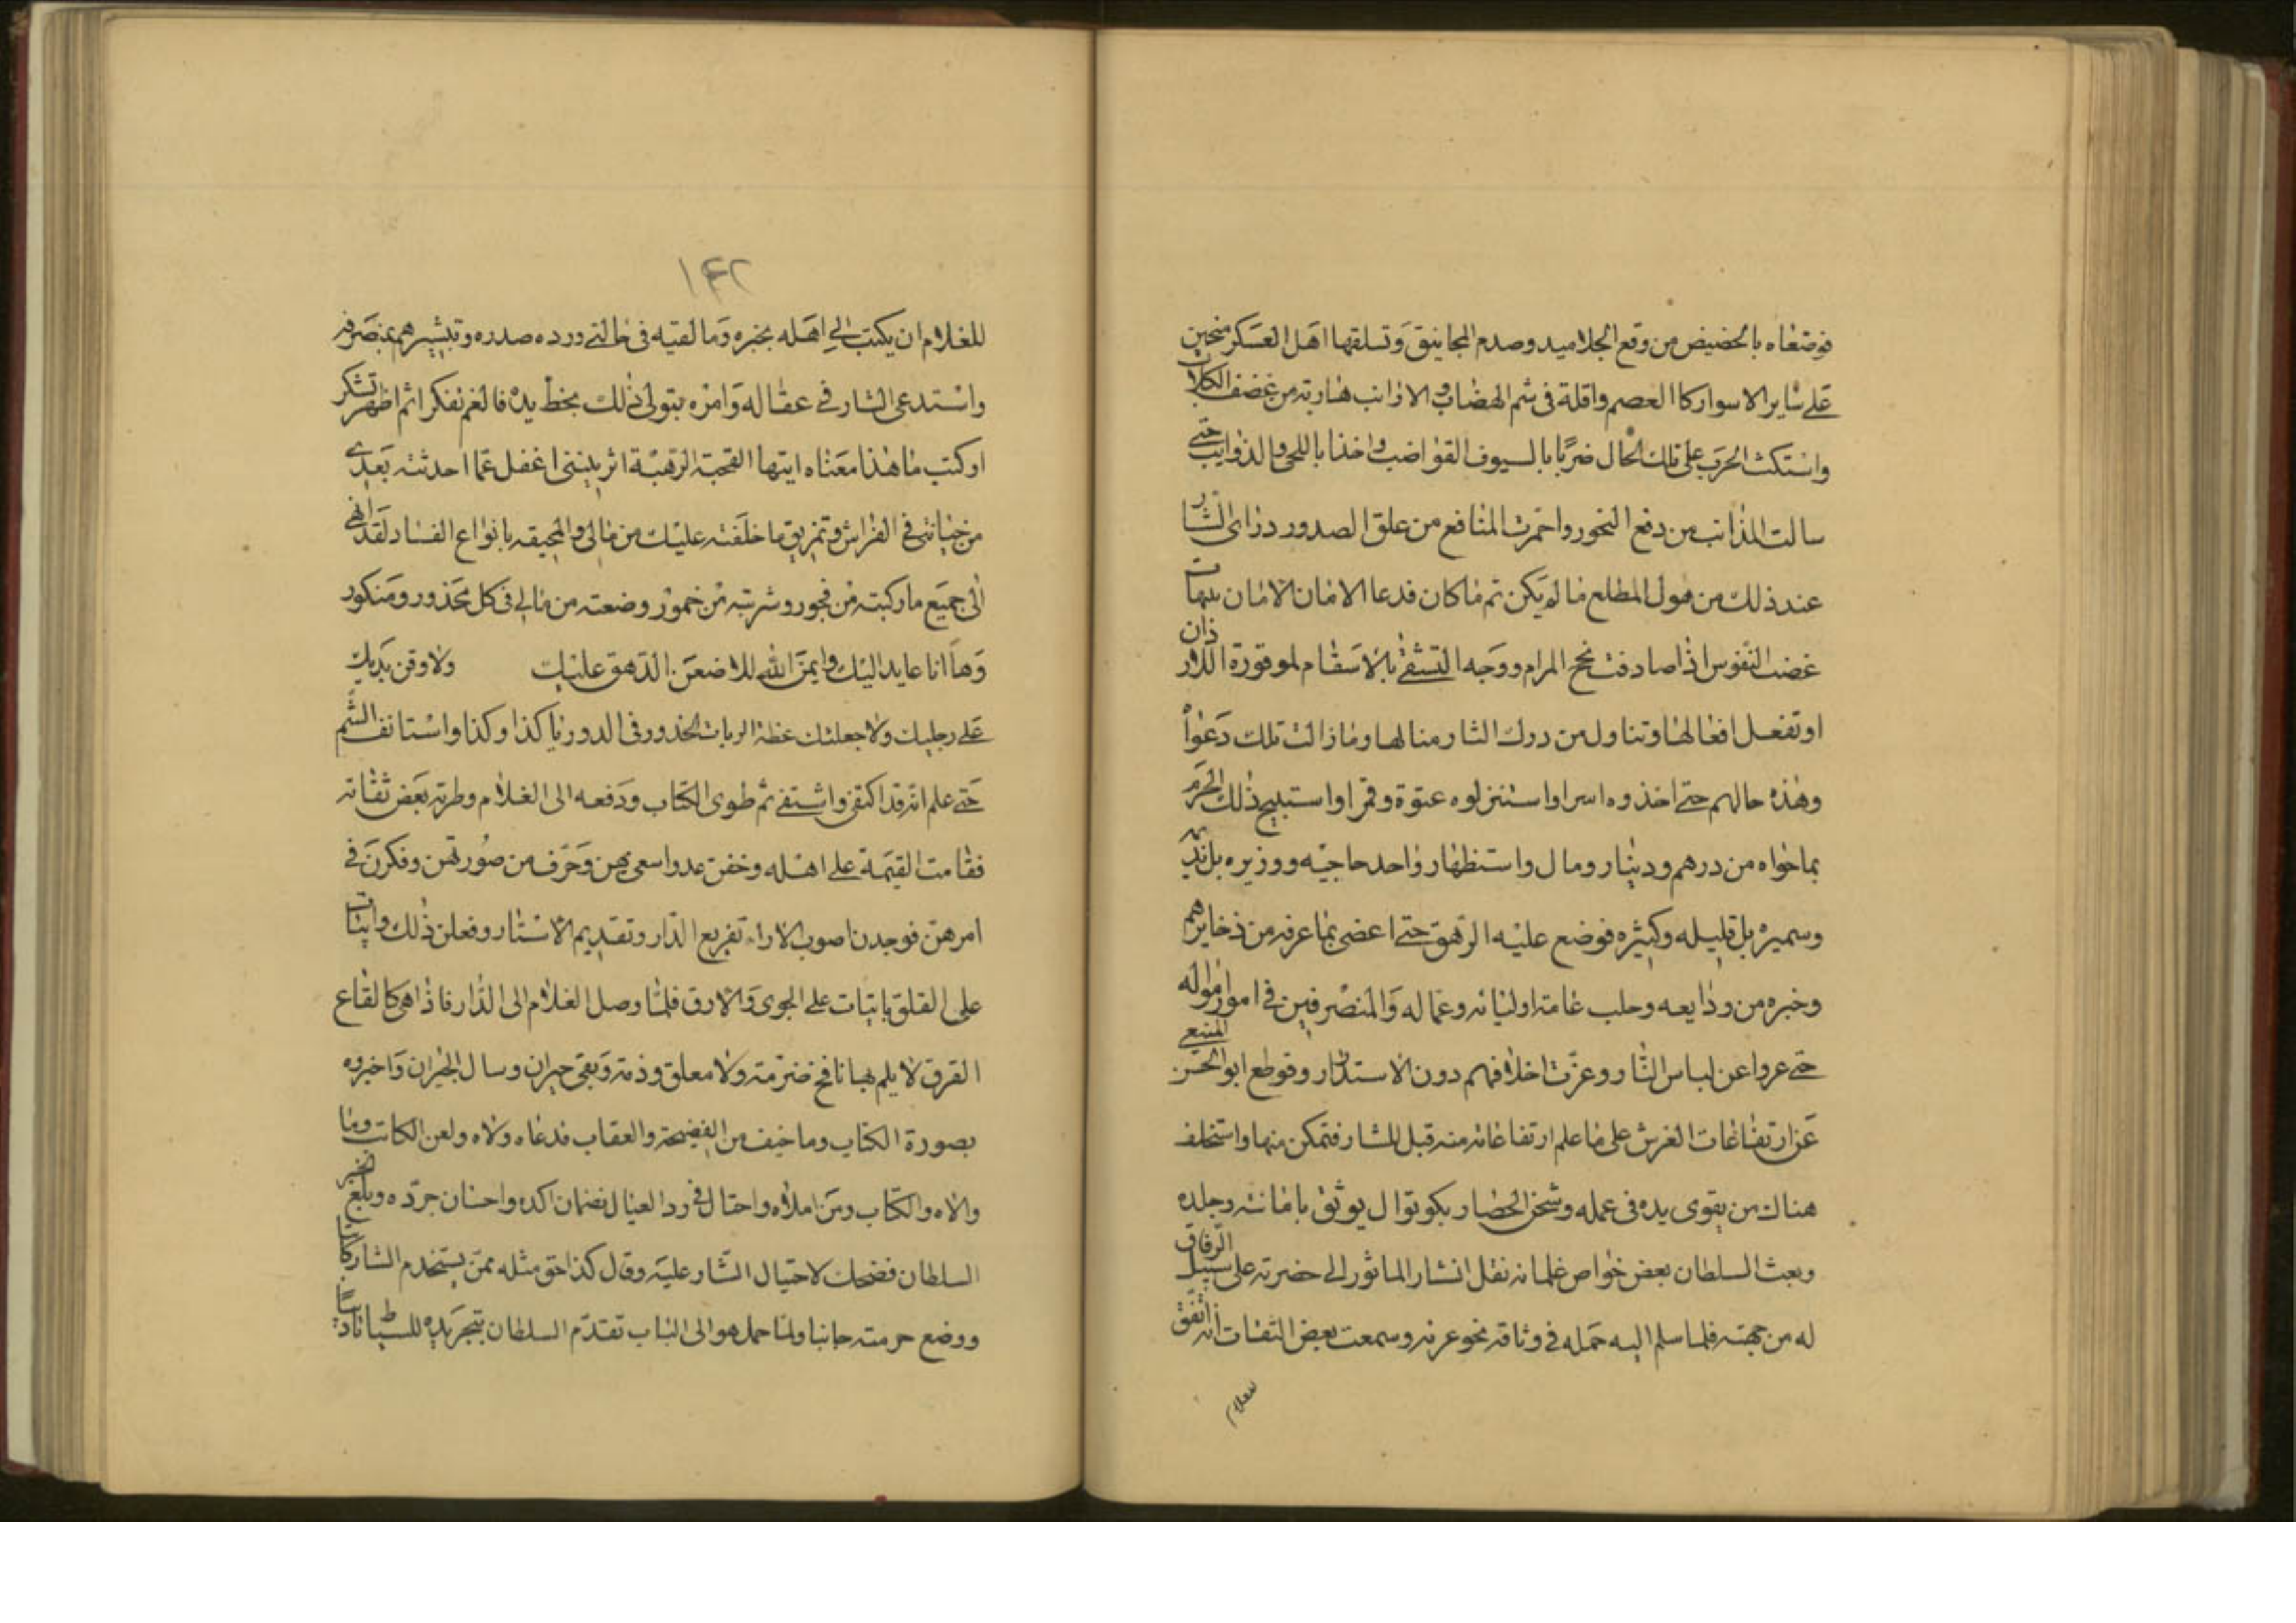 فوضعاه بالحضيض من وقع الجلاميد وصدم المجانيق وتسلقها اهل العسكر منحين
على ساير الاسوار كاالعصم واقلة فى شم الهضاب والارانب هاربة من غضف الكلاب
واستكت الحرب على تلك الحال ضربا بالسيوف القواضب واخذا باللحى والذوايب حتى
سالت المذانب من دفع النحور واحمرت المنافع من علق الصدور وراى الشار
عند ذلك من هول المطلع ما لم يكن ثم ما كان فدعا الامان الامان هيهات
غضب النفوس اذا صادفت نجح المرام ووجه التشفى بالاسقام لموقورة الذان
او تفعل افعالها وتناول من درك الثار منالها وما زالت تلك دعوا
وهذه حالهم حتى اخذوه اسرا واستنزلوه عنوة وقهرا واستبيح ذلك الحرم
بما حواه من درهم ودينار ومال واستظهار واحد حاجبه ووزيره بل نديمه
وسميره بل قليله وكثيره فوضع عليه الدهق حتى اعضى بما عرفه من ذخايرهم
وخبره من ودايعه وحلب عامة اوليائه وعماله والمنصرفين فى امور امواله
حتى عروا عن لباس الثار وعزت اخلافهم دون الاستدرار وقوطع ابو الحسن المنيعى
عن ارتفاعات الغرش على ما علم ارتفاعاته منه قبل للشار فتمكن منها واستخلف
هناك من يقوى يده فى عمله وشحن الحصار بكوتوال يوثق بامانته وجلده
وبعث السلطان بعض خواص غلمانه نقل الشار الماثور الى حضرته على سبيل الرفاق
له من جهته فلما سلم اليه حمله فى وثاقه نحو غرنه وسمعت بعض الثقات انه اتفق
للغلام
١٤٢
للغلام ان يكتب الى اهله بخبره وما لقيه فى حالتى ورده صدره وتبشيرهم بمنصرفه
واستدعى الشار فى عقاله وامره بتولى ذلك بخط يده فالغم تفكر اثم اظهر تشكر
او كتب ما هذا معناه ايتها القحبة الرهبة اتريننى اغفل عما احدثته بعدى
من خيانتى فى الفراش وتمزيق ما خلفته عليك من مالى والمجيقه بانواع الفساد لقد انهى
الى جميع ما ركبته من فجور وشربته من خمور وضعته من مالى فى كل محذور ومنكور
وها انا عايد اليك وايمن الله للاضعن الدهق عليك ولاوقن يديك
على رجليك ولاجعلنك عظة الربات الخدور فى الدور يا كذا وكذا واستانف الشتم
حتى علم انه قد اكتفى واشتفى ثم طوى الكتاب ودفعه الى الغلام وطرته بعض ثقاته
فقامت القيمة على اهله وخفن عدوا سعى بهن وحرف من صورتهن وفكرن فى
امرهن فوجدن اصوب الاراء تفريع الدار وتقديم الاستار وفعلن ذلك وابتات
على القلق بايتات على الجوى والارق فلما وصل الغلام الى الدار فاذا هى كالقاع
القرق لا يلم بها نافخ ضرمة ولا معلق وذمة وبقى حيران وسال الجيران واخبروه
بصورة الكتاب وما خيف من الفضيحة والعقاب فدعاه ولاه ولعن الكاتب وما
والاه والكتاب ومن املاه واحتال فى رد العيال بضمان اكده واحسان جرده وبلغ الخبر
السلطان فضحك لاحتيال الشار عليه وقال كذا حق مثله ممن يستخدم الشار كاتبا
ووضع حرمته جانبا ولما حمل هو الى الباب تقدم السلطان بتجريده للسياط تاديبا